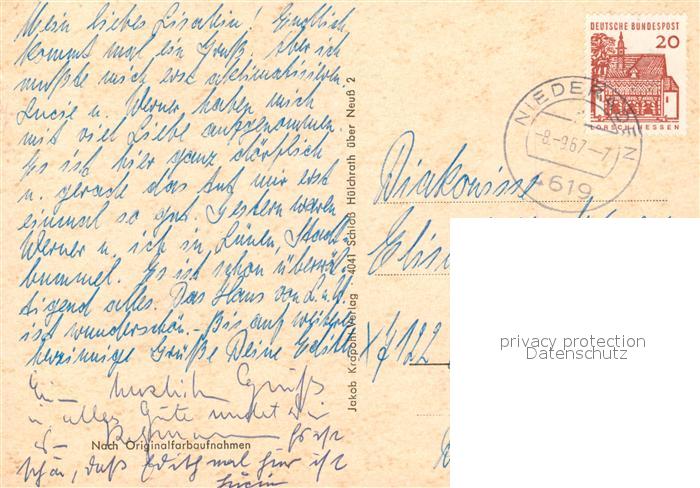 Mein liebes Lisalein! Endlich
kommt mal ein Gruß. Aber ich
mußte mich erst aklimatisieren.
Lucie u. Werner haben mich
mit viel Liebe aufgenommen.
Es ist hier ganz dörflich
u. gerade das tut mir erst
einmal so gut. Gestern waren
Werner u. ich in Lünen, Stadt-
bummel. Es ist schon überwäl-
tigend alles. Das Haus von L. u. W.
ist wunderschön. - Bis auf weiteres
herzinnige Grüße Deine Edith
Ein herzlichen Gruß
u. alles Gute
schön, daß Edith mal hier ist
Lucie
Nach Originalfarbaufnahmen
Jakob Krapohl-Verlag 4041 Schloß Hülchrath über Neuß 2
DEUTSCHE BUNDESPOST
20
LORSCH/HESSEN
NIEDER
-8.-9.67-7
4619
Diakonisse
X 7122
privacy protection
Datenschutz